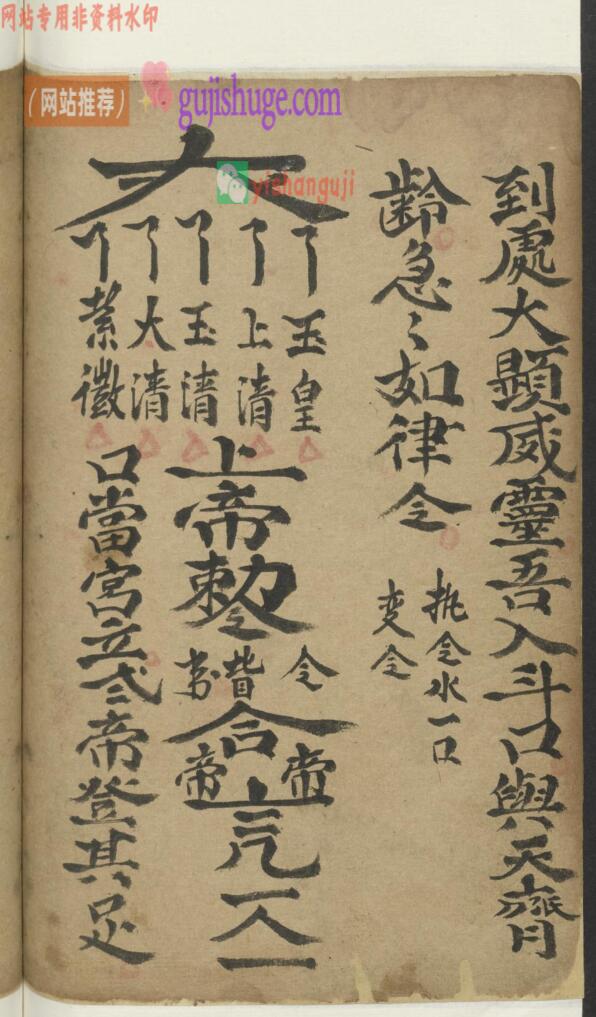 网站专用非资料水印
（网站推荐）
gujishuge.com
yishanguji
到處大顯威靈吾入斗口與天齊
齡急〻如律令
执令水一口
变令
玉皇
上清
玉清
大清
紫微
上帝敕令
令
合
帝
帝
口當宮立
帝登其足